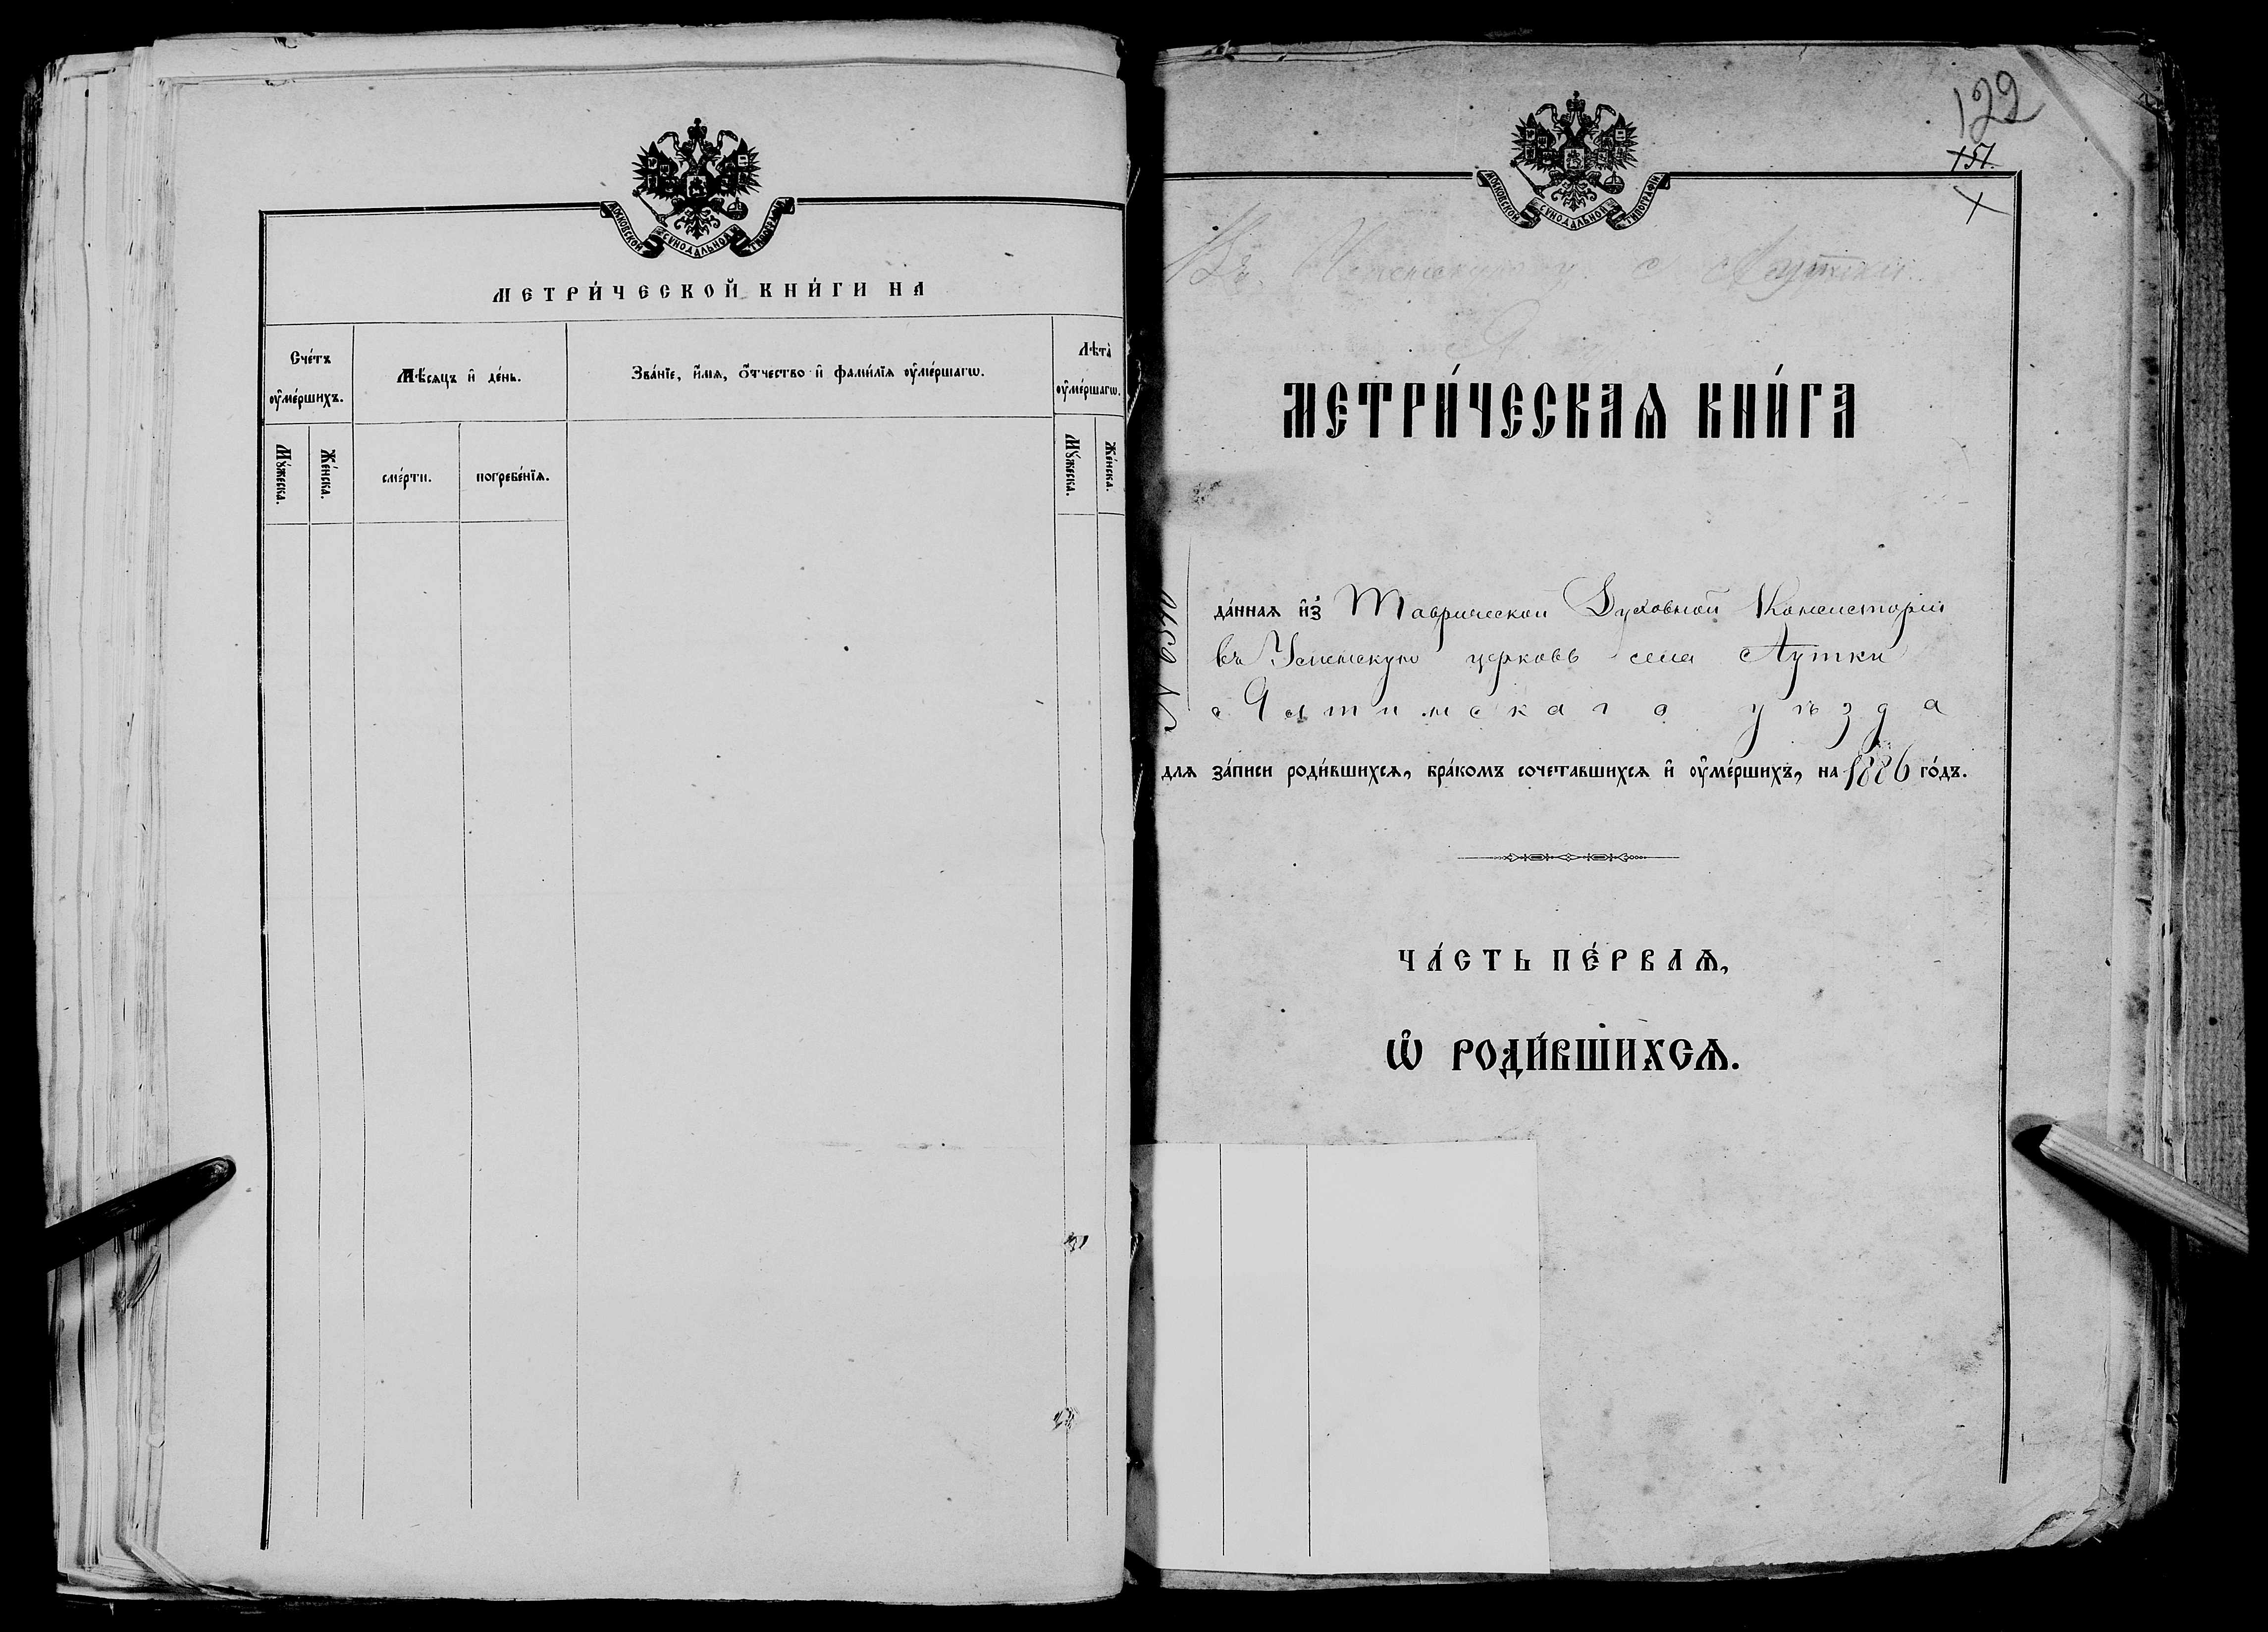 МОСКОВСКОЙ СѴНОДАЛЬНОЙ ТИПОГРАФІИ
МЕТРИ́ЧЕСКОЙ КНИ́ГИ НА
Сче́тъ ᲂу҆ме́ршихъ.
Мѣ́сяцъ и҆ де́нь.
Зва́нїе, и҆́мѧ, ѻ҆́тчество и҆ фами́лїѧ ᲂу҆ме́ршагѡ.
Лѣта̀ ᲂу҆ме́ршагѡ.
Мꙋ́жеска.
Же́нска.
сме́рти.
погребе́нїѧ.
Мꙋ́жеска.
Же́нска.
122
151.
МОСКОВСКОЙ СѴНОДАЛЬНОЙ ТИПОГРАФІИ
Въ с Аутки
МЕТРИ́ЧЕСКАѦ КНИ́ГА
да́ннаѧ и҆з̾ Таврической Духовной Консисторіи
въ Успенскую церковь села Аутки
Ялтинскаго уѣзда
длѧ за́писи роди́вшихсѧ, бра́комъ сочета́вшихсѧ и҆ ᲂу҆ме́ршихъ, на 1886 го́дъ.
ЧА́СТЬ ПЕ́РВАѦ,
Ѡ҆ РОДИ́ВШИХСѦ.